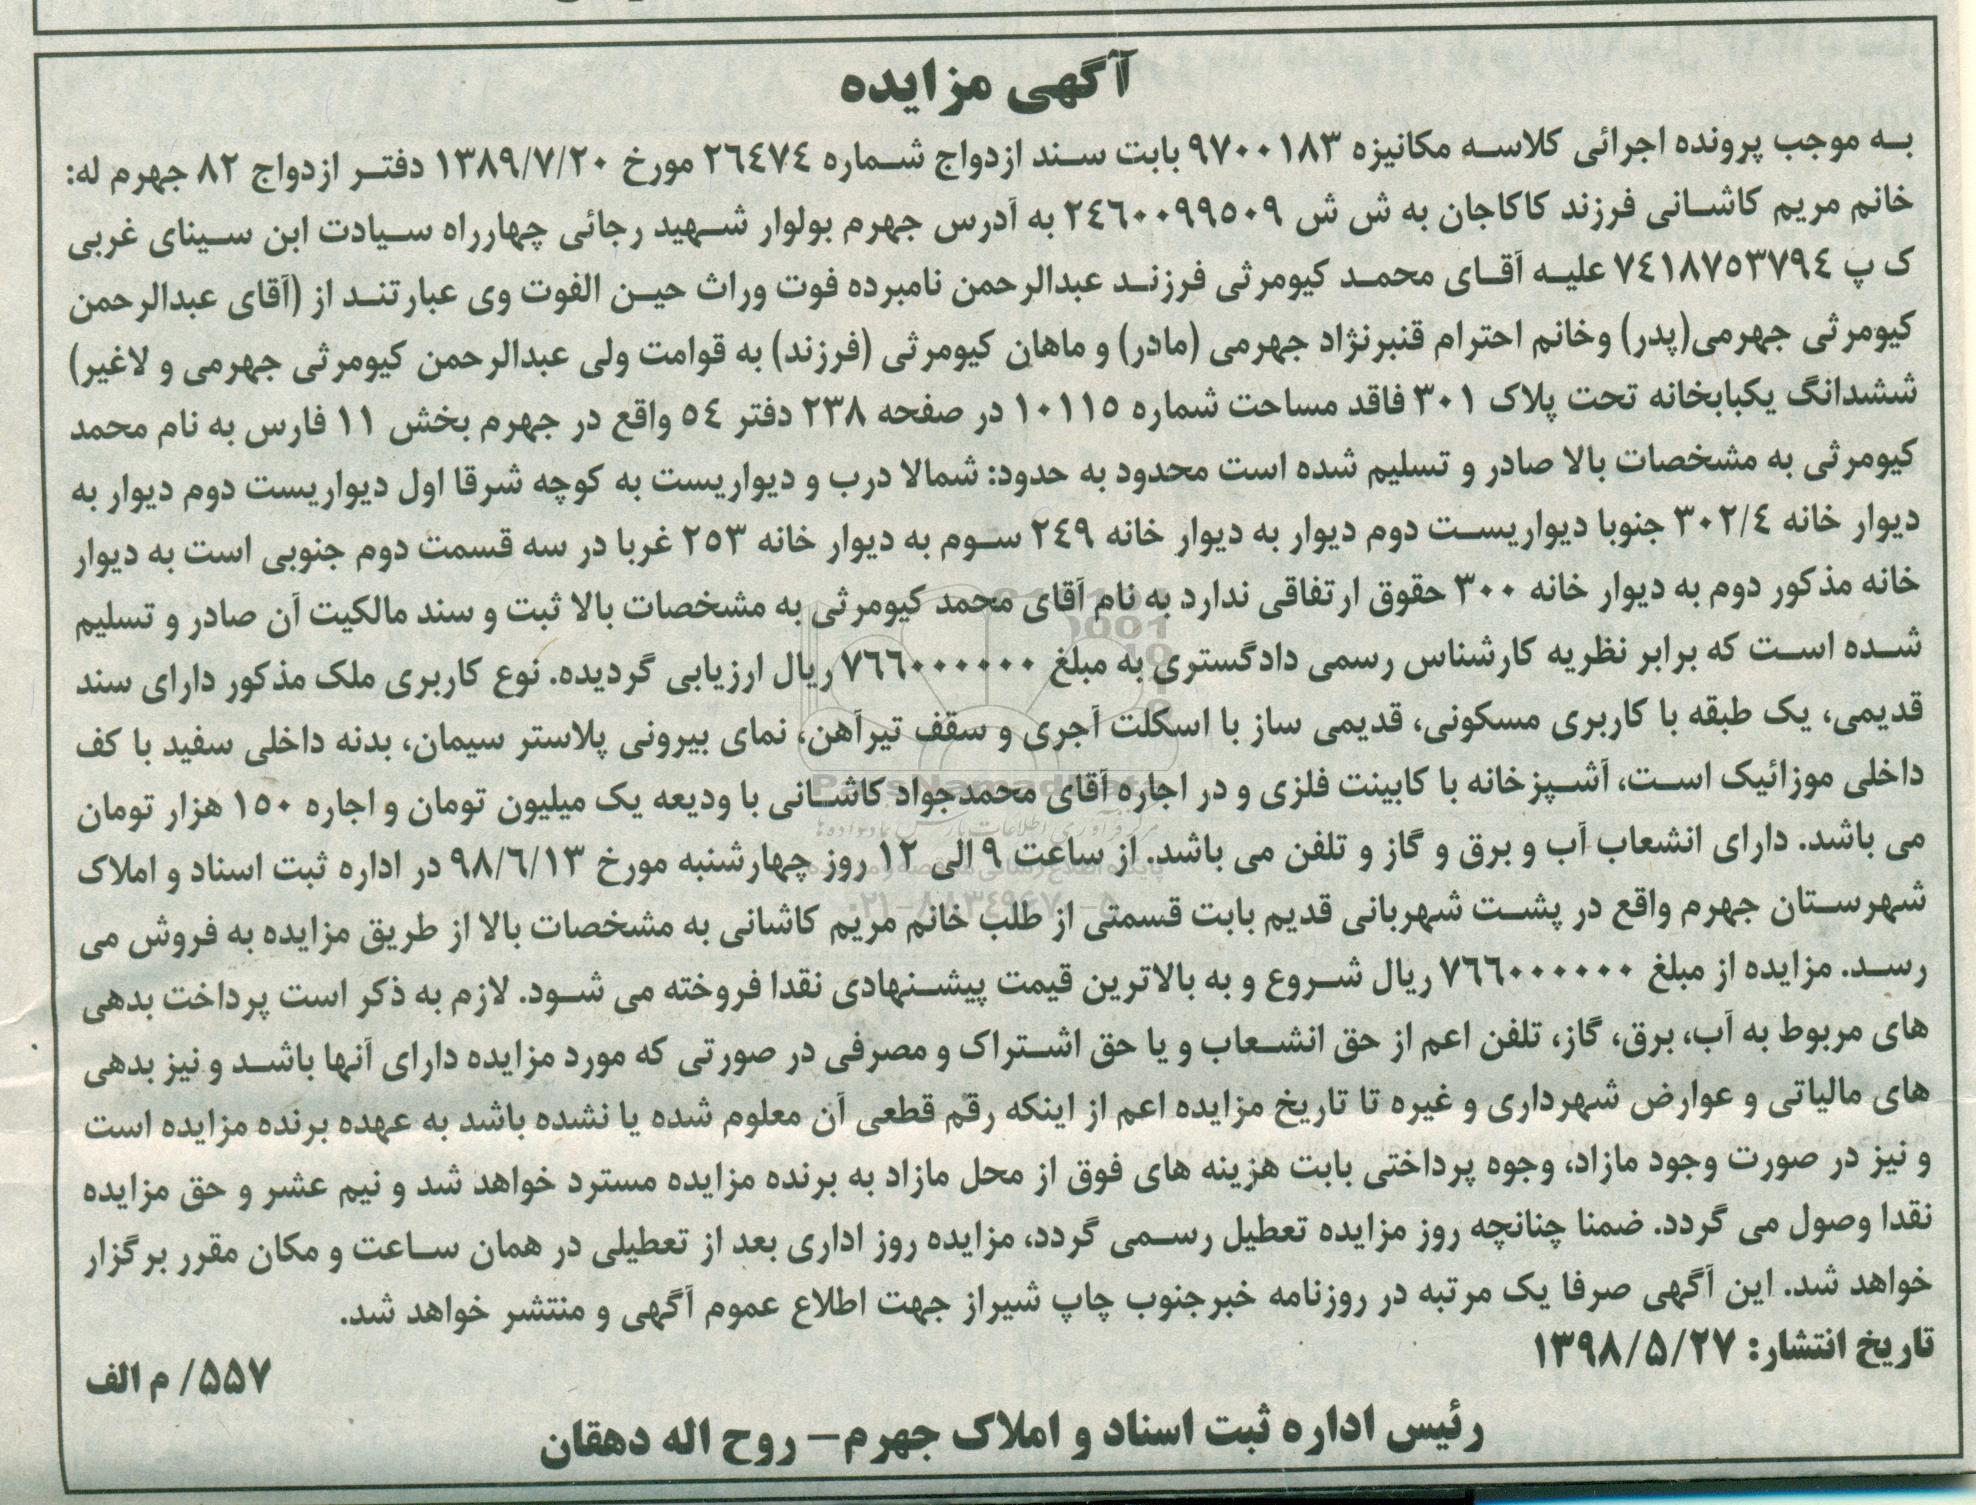 آگهی مزایده
به موجب پرونده اجرائی کلاسه مکانیزه ۹۷۰۰۱۸۳ بابت سند ازدواج شماره ۲۶۴۷۴ مورخ ۱۳۸۹/۷/۲۰ دفتر ازدواج ۸۲ جهرم له:
خانم مریم کاشانی فرزند کاکاجان به ش ش ۲۴۶۰۰۹۹۵۰۹ به آدرس جهرم بولوار شهید رجائی چهارراه سیادت ابن سینای غربی
ک پ ۷۴۱۸۷۵۳۷۹۴ علیه آقای محمد کیومرثی فرزند عبدالرحمن نامبرده فوت وراث حین الفوت وی عبارتند از (آقای عبدالرحمن
کیومرثی جهرمی(پدر) وخانم احترام قنبرنژاد جهرمی (مادر) و ماهان کیومرثی (فرزند) به قوامت ولی عبدالرحمن کیومرثی جهرمی و لاغیر)
ششدانگ یکبابخانه تحت پلاک ۳۰۱ فاقد مساحت شماره ۱۰۱۱۵ در صفحه ۲۳۸ دفتر ۵۴ واقع در جهرم بخش ۱۱ فارس به نام محمد
کیومرثی به مشخصات بالا صادر و تسلیم شده است محدود به حدود: شمالا درب و دیواریست به کوچه شرقا اول دیواریست دوم دیوار به
دیوار خانه ۳۰۲/۴ جنوبا دیواریست دوم دیوار به دیوار خانه ۲۴۹ سوم به دیوار خانه ۲۵۳ غربا در سه قسمت دوم جنوبی است به دیوار
خانه مذکور دوم به دیوار خانه ۳۰۰ حقوق ارتفاقی ندارد به نام آقای محمد کیومرثی به مشخصات بالا ثبت و سند مالکیت آن صادر و تسلیم
شده است که برابر نظریه کارشناس رسمی دادگستری به مبلغ ۷۶۶۰۰۰۰۰۰ ریال ارزیابی گردیده. نوع کاربری ملک مذکور دارای سند
قدیمی، یک طبقه با کاربری مسکونی، قدیمی ساز با اسکلت آجری و سقف تیرآهن، نمای بیرونی پلاستر سیمان، بدنه داخلی سفید با کف
داخلی موزائیک است، آشپزخانه با کابینت فلزی و در اجاره آقای محمدجواد کاشانی با ودیعه یک میلیون تومان و اجاره ۱۵۰ هزار تومان
می باشد. دارای انشعاب آب و برق و گاز و تلفن می باشد. از ساعت ۹ الی ۱۲ روز چهارشنبه مورخ ۹۸/۶/۱۳ در اداره ثبت اسناد و املاک
شهرستان جهرم واقع در پشت شهربانی قدیم بابت قسمتی از طلب خانم مریم کاشانی به مشخصات بالا از طریق مزایده به فروش می
رسد. مزایده از مبلغ ۷۶۶۰۰۰۰۰۰ ریال شروع و به بالاترین قیمت پیشنهادی نقدا فروخته می شود. لازم به ذکر است پرداخت بدهی
های مربوط به آب، برق، گاز، تلفن اعم از حق انشعاب و یا حق اشتراک و مصرفی در صورتی که مورد مزایده دارای آنها باشد و نیز بدهی
های مالیاتی و عوارض شهرداری و غیره تا تاریخ مزایده اعم از اینکه رقم قطعی آن معلوم شده یا نشده باشد به عهده برنده مزایده است
و نیز در صورت وجود مازاد، وجوه پرداختی بابت هزینه های فوق از محل مازاد به برنده مزایده مسترد خواهد شد و نیم عشر و حق مزایده
نقدا وصول می گردد. ضمنا چنانچه روز مزایده تعطیل رسمی گردد، مزایده روز اداری بعد از تعطیلی در همان ساعت و مکان مقرر برگزار
خواهد شد. این آگهی صرفا یک مرتبه در روزنامه خبرجنوب چاپ شیراز جهت اطلاع عموم آگهی و منتشر خواهد شد.
تاریخ انتشار: ۱۳۹۸/۵/۲۷
۵۵۷/ م الف
رئیس اداره ثبت اسناد و املاک جهرم– روح اله دهقان